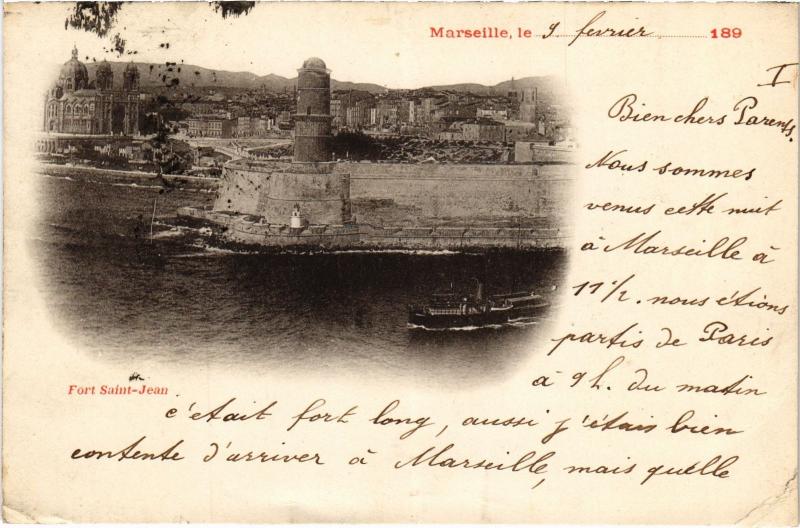 Marseille, le 9 fevrier 189
I
Bien chers Parents.
Nous sommes
venus cette nuit
à Marseille à
11 1/2. nous étions
partis de Paris
à 9h. du matin
Fort Saint-Jean
c'était fort long, aussi j'étais bien
contente d'arriver à Marseille, mais quelle